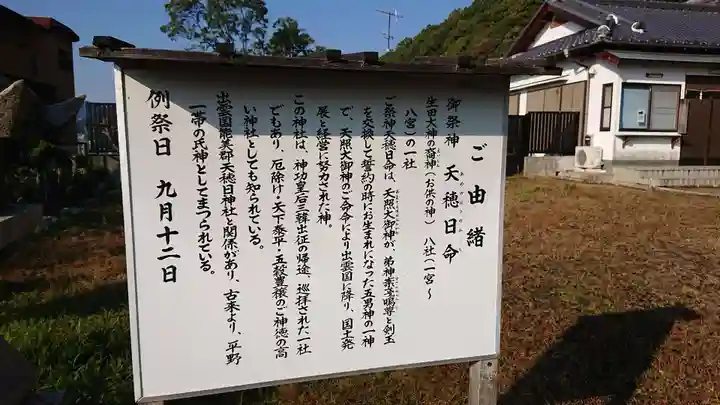 ご由緒
御祭神　天穂日命
生田大神の裔神（お供の神）　八社（一宮～
八宮）の一社
ご祭神天穂日命は、天照大御神が、弟神素盞嗚尊と剣玉
を交換して誓約の時にお生まれになった五男神の一神
で、天照大御神のご命令により出雲国に降り、国土発
展と経営に努力された神。
この神社は、神功皇后三韓出征の帰途、巡拝された一社
でもあり、厄除け・天下泰平・五穀豊穣のご神徳の高
い神社としても知られている。
出雲国能美郡天穂日神社と関係があり、古来より、平野
一帯の氏神としてまつられている。
例祭日　九月十二日